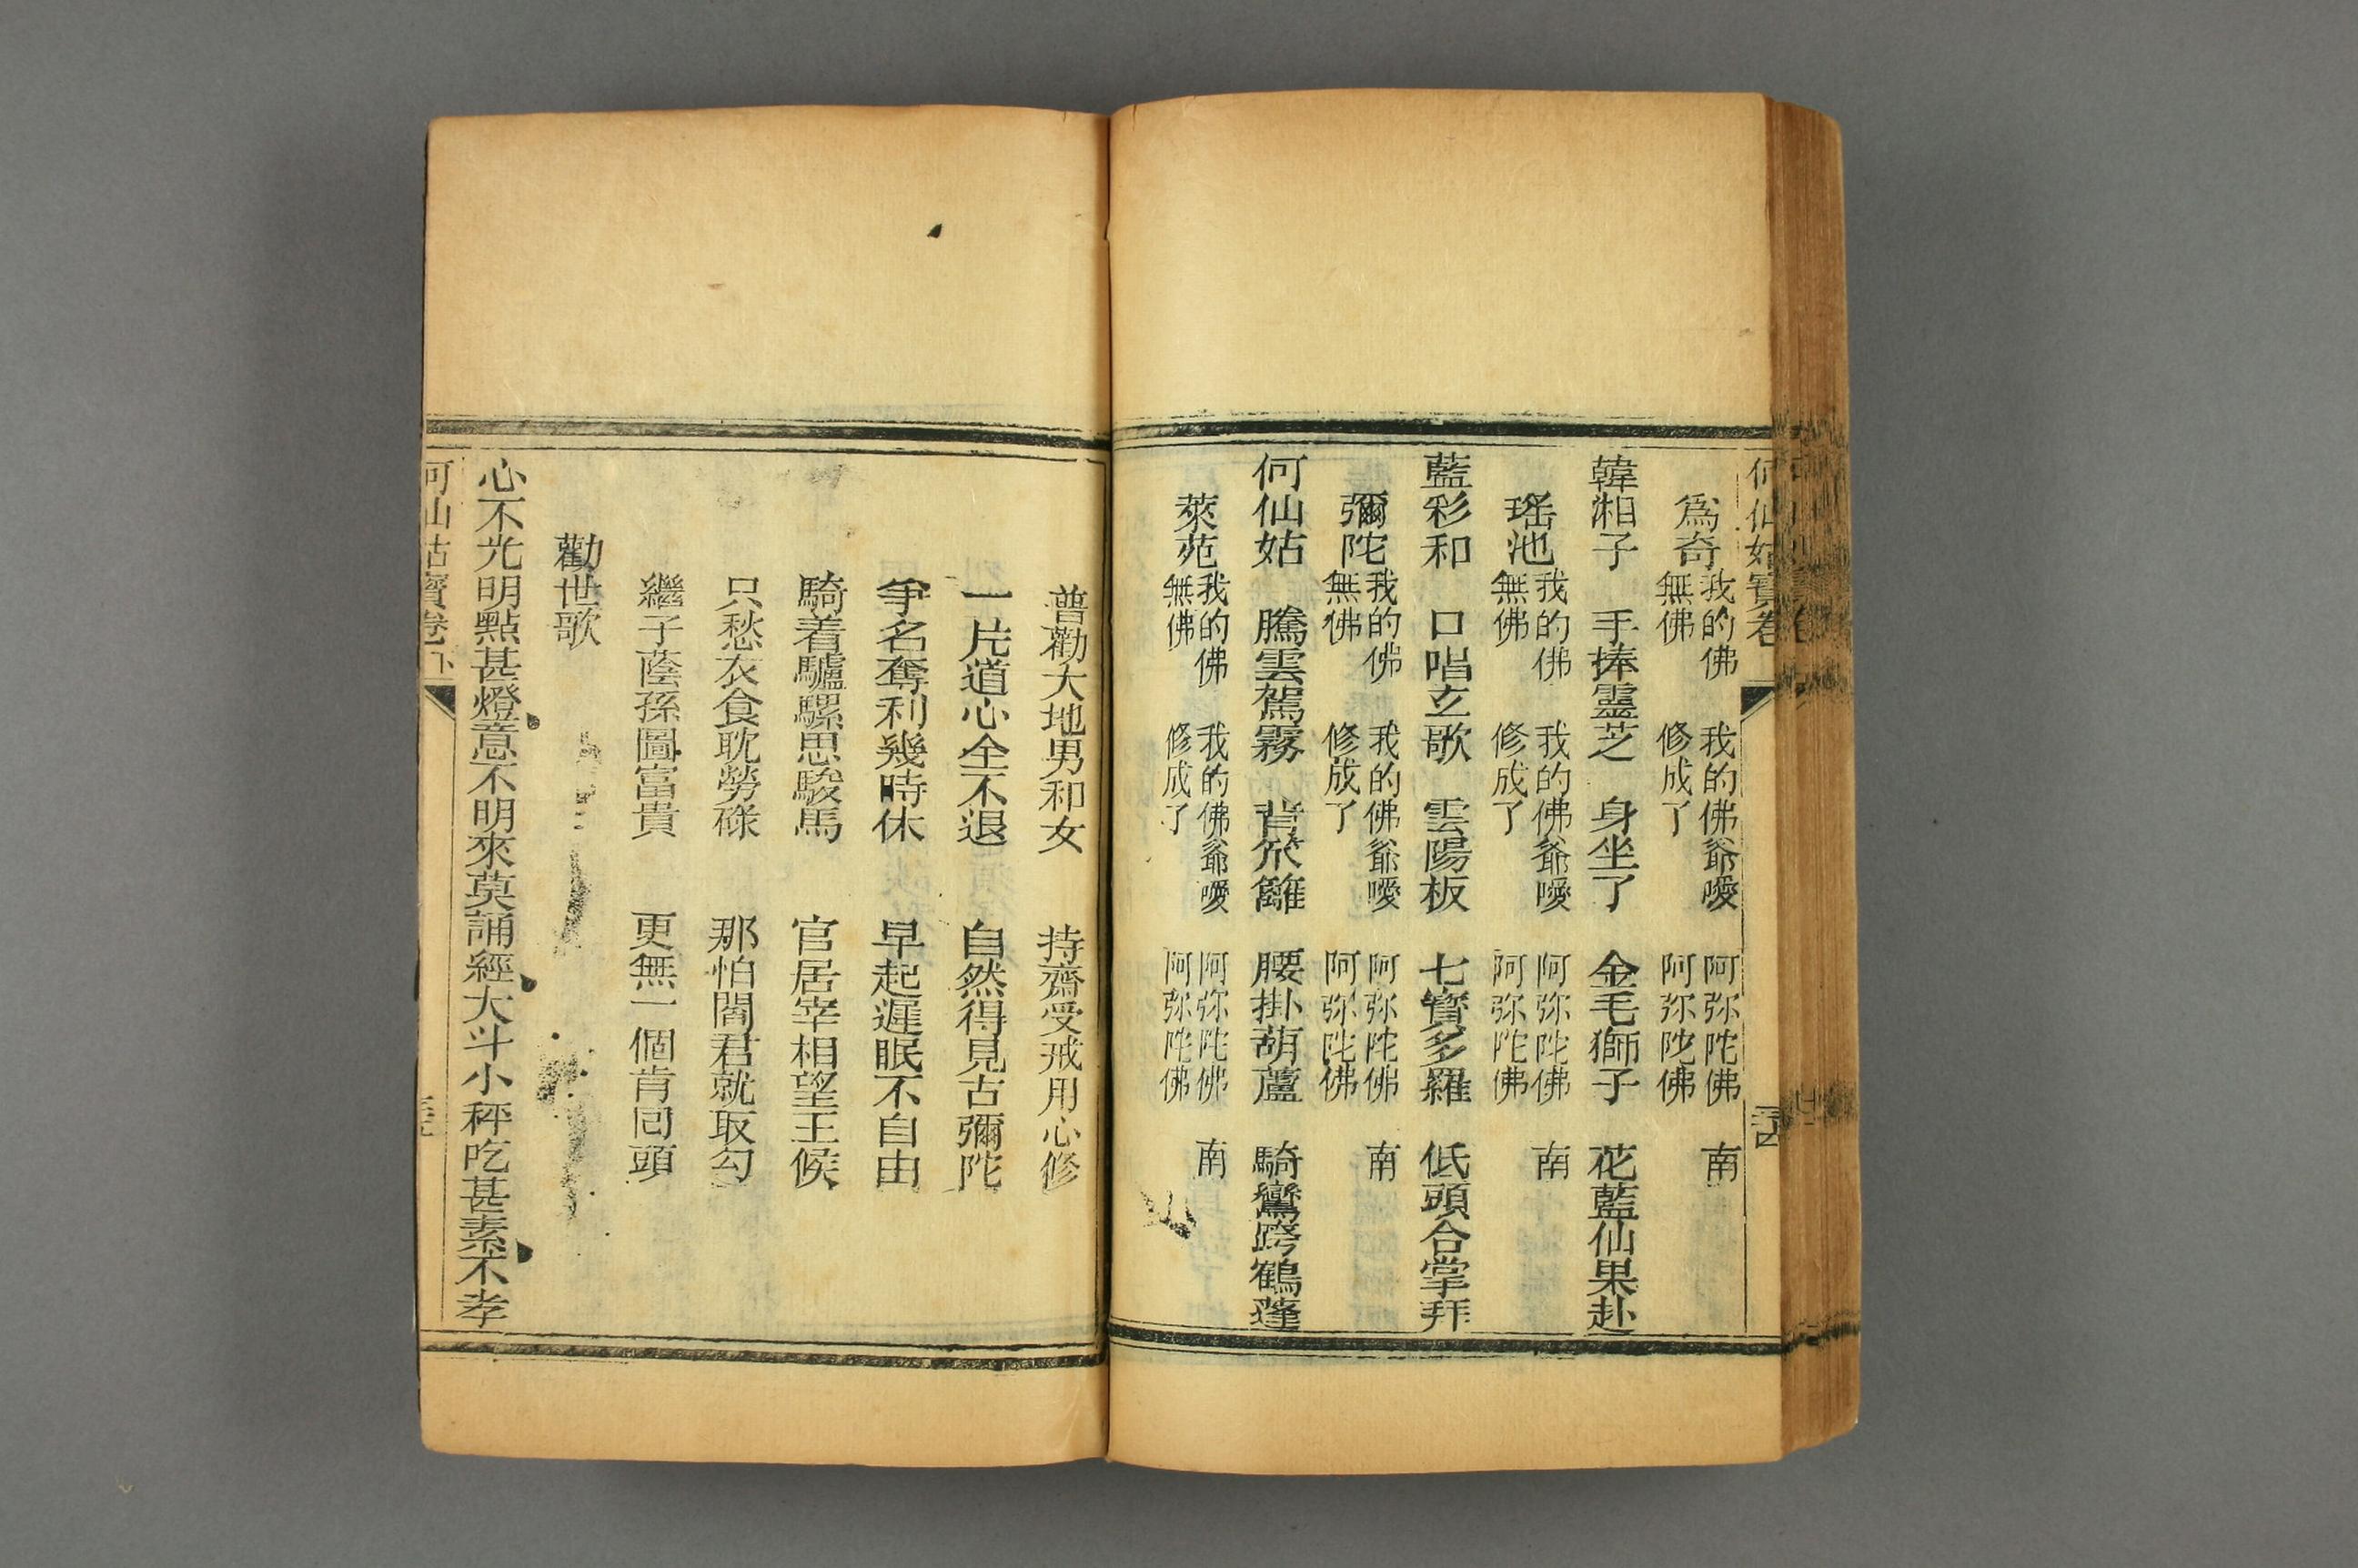 何仙姑寶卷
為奇 我的佛 我的佛爺噯 阿弥陀佛 南
無佛 修成了 阿弥陀佛
韓湘子 手捧靈芝 身坐了 金毛獅子 花藍仙果赴
瑤池 我的佛 我的佛爺噯 阿弥陀佛 南
無佛 修成了 阿弥陀佛
藍彩和 口唱玄歌 雲陽板 七寶多羅 低頭合掌拜
彌陀 我的佛 我的佛爺噯 阿弥陀佛 南
無佛 修成了 阿弥陀佛
何仙姑 騰雲駕霧 背笊籬 腰掛葫蘆 騎鸞跨鶴蓬
萊苑 我的佛 我的佛爺噯 阿弥陀佛 南
無佛 修成了 阿弥陀佛
普勸大地男和女 持齋受戒用心修
一片道心全不退 自然得見古彌陀
爭名奪利幾時休 早起遲眠不自由
騎着驢騾思駿馬 官居宰相望王候
只愁衣食耽勞碌 那怕閻君就取勾
繼子蔭孫圖富貴 更無一個肯囘頭
勸世歌
心不光明點甚燈意不明來莫誦經大斗小秤吃甚素不孝
何仙姑寶卷下